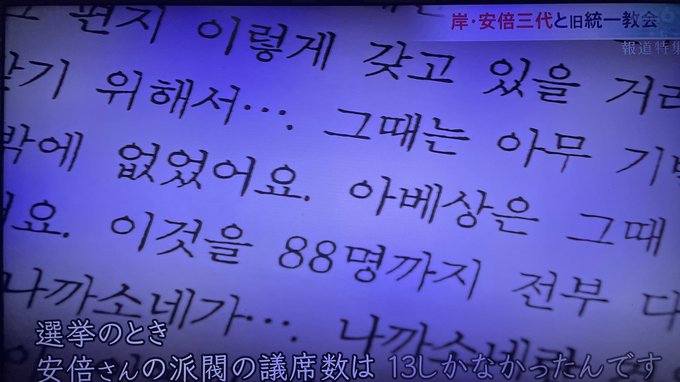 岸・安倍三代と旧統一教会
報道特集
편지 이렇게 갖고 있을
위해서…. 그때는 아무
밖에 없었어요. 아베상은 그때
이것을 88명까지 전부 다
나까소네가…. 나까소네
選挙のとき
安倍さんの派閥の議席数は 13しかなかったんです